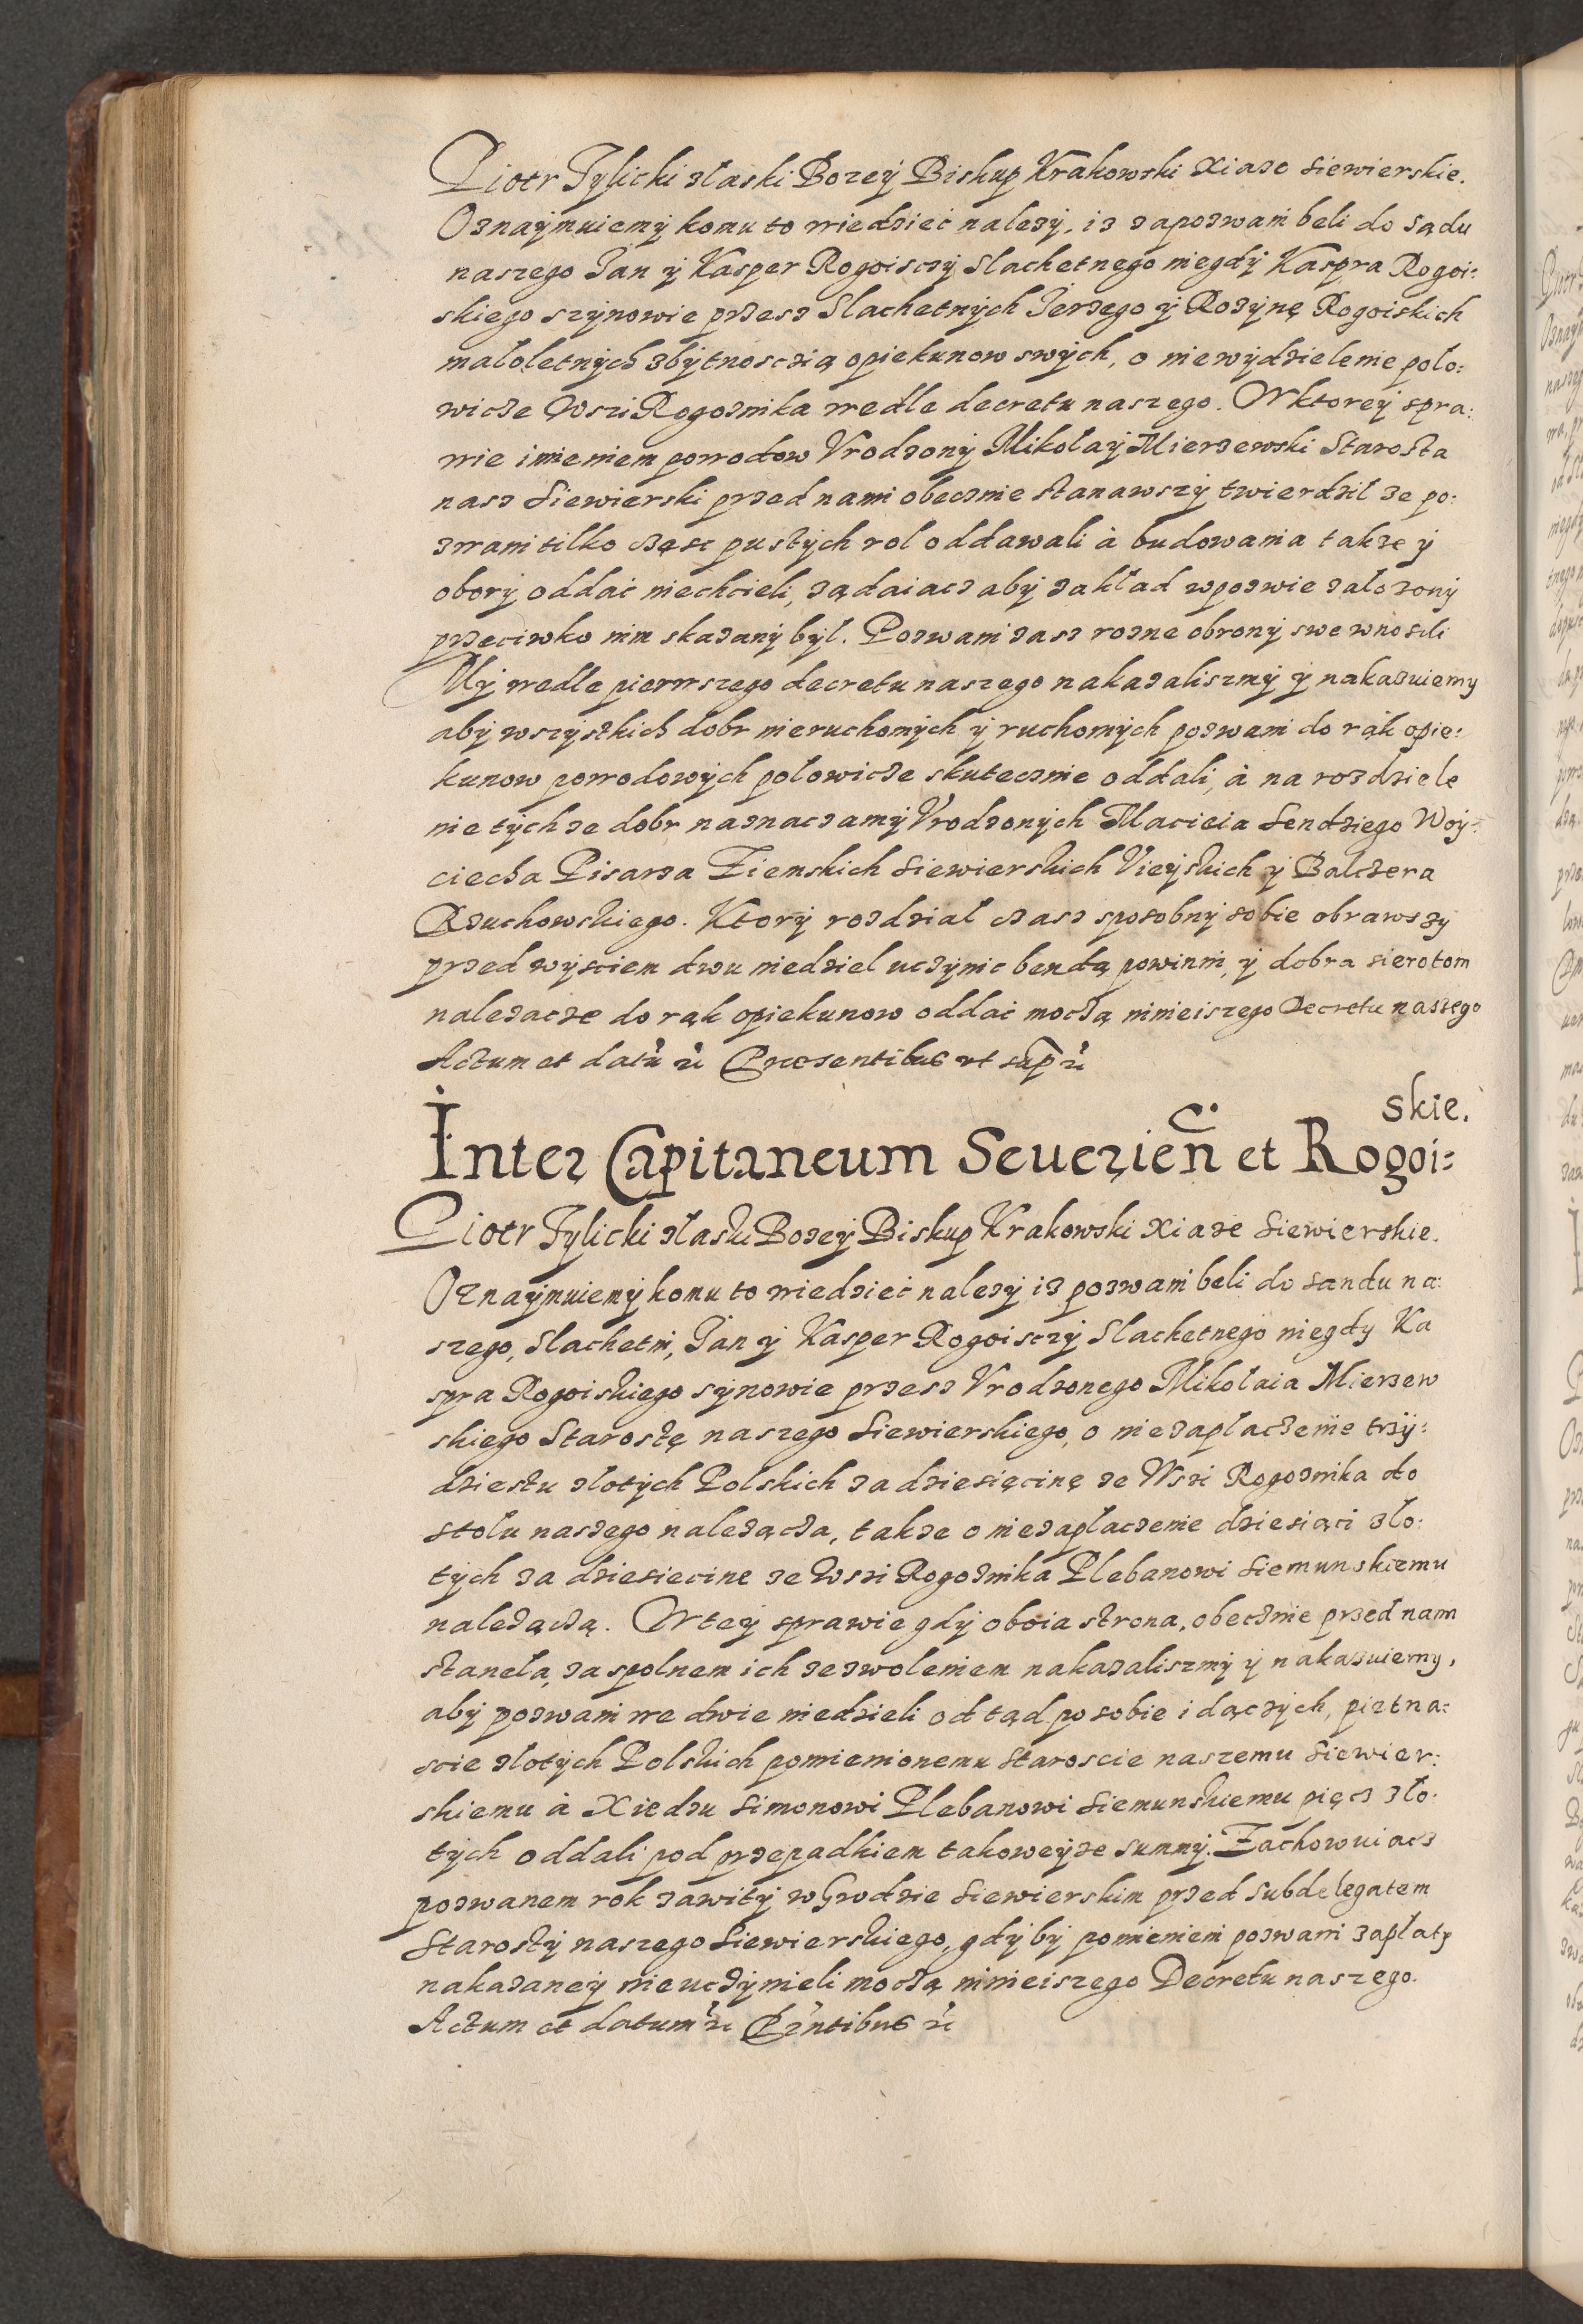 Piotr Tylicki złaski Bozey Biskup Krakowski Xiaze Siewierskie.
Oznaymuiemy komu to wiedzieć nalezy, iz zapozwani beli do Sądu
naszego Jan y Kasper Rogoisczy Slachetnego niegdy Kaspra Rogoi:
skiego szynowie przesz Slachetnych Jerzego y Rozynę Rogoiskich
małoletnych zbytnosczią opiekunow swych, o niewydzielenie poło:
wicze Wszi Rogoznika wedle decretu naszego. W ktorey spra:
wie imieniem powodow Vrodzony Mikołay Mierzewski Starosta
nasz Siewierski przed nami obecznie stanawszy twierdził ze po:
zwani tilko częsc pustych rol oddawali à budowania takze y
obory oddać niechcieli, ządaiacz aby zakład wpozwie załozony
przeciwko nim skazany był. Pozwani zasz rozne obrony swe wnosili
My wedle pierwszego decretu naszego nakazaliszmy y nakazuiemy
aby wszystkich dobr nieruchomych y ruchomych pozwani do rąk opie:
kunow powodowych połowicze skutecznie oddali, à na rozdziele
nie tychze dobr naznaczamy Vrodzonych Macieia Sendziego Woy:
ciecha Pisarza Ziemskich Siewierskich Vieyskich y Balczera
Rzuchowskiego. Ktory rozdział czasz sposobny sobie obrawszy
przed wysciem dwu niedziel uczynic bendą powinni, y dobra sierotom
nalezacze do rąk opiekunow oddać moczą ninieiszego Decretu naszego
Actum et datu ꝛc Præsentibus ut sup ꝛc
Inter Capitaneum Seuerien et Rogoi=
skie.
Piotr Tylicki złaski Bozey Biskup Krakowski Xiaze Siewierskie.
Oznaymuiemy komu to wiedzieć nalezy iz pozwani beli do sandu na:
szego, Slachetni, Jan y Kasper Rogoisczy Slachetnego niegdy Ka
spra Rogoiskiego synowie przesz Vrodzonego Mikołaia Mierzew
skiego Starostę naszego Siewierskiego, o niezapłaczenie trzy:
dziestu złotych Polskich za dziesięcinę ze Wszi Rogoznika do
stołu naszego nalezącza, takze o niezapłaczenie dziesiąci zło:
tych za dziesiecine ze Wszi Rogoznika Plebanowi Siemunskiemu
nalezączą. W tey sprawie gdy oboia strona, obecznie przed nam
stanela, za spolnem ich zezwoleniem nakazaliszmy y nakazuiemy,
aby pozwani we dwie niedzieli od tąd po sobie idączych, pietna:
scie złotych Polskich pomienionemu staroscie naszemu Siewier:
skiemu à Xiedzu Simonowi Plebanowi Siemunskiemu pięcz zło:
tych oddali pod przepadkiem takoweyze summy. Zachowuiacz
pozwanem rok zawity w Grodzie Siewierskim przed Subdelegatem
Starosty naszego Siewierskiego, gdyby pomienieni pozwani zapłaty
nakazaney nieuczynieli moczą ninieiszego Decretu naszego.
Actum et datum ꝛc Pꝛntibus ꝛc